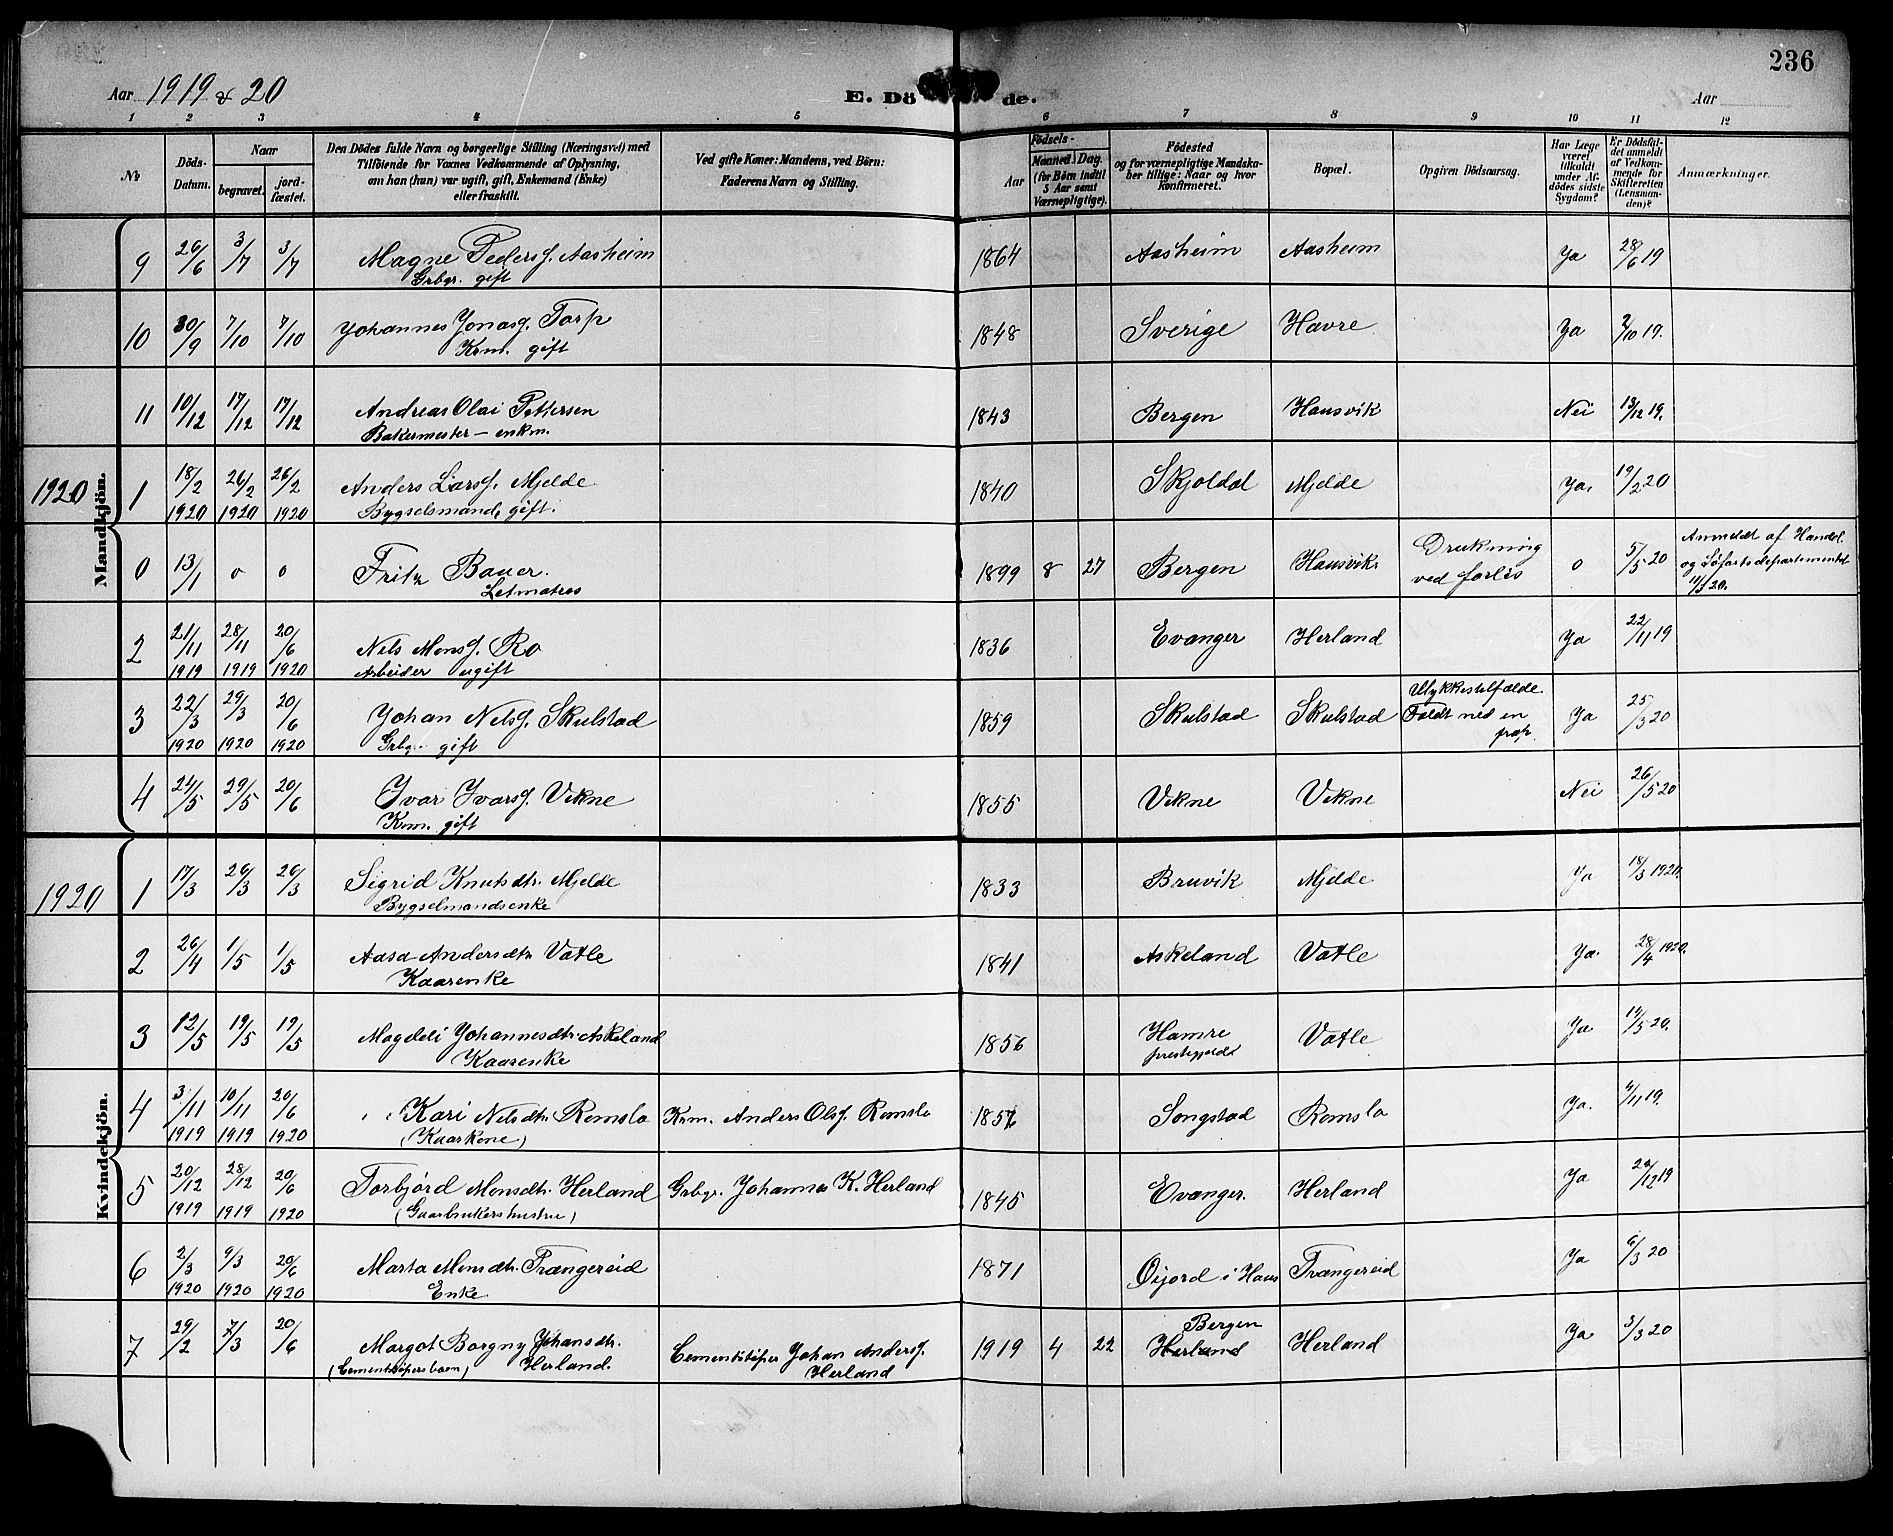 236
Aar 1919 & 20 E. Dö de. Aar
1 2 3 4 5 6 7 8 9 10 11 12
No
Döds-Datum.
Naar
begravet.
jord-fæstet.
Den Dödes fulde Navn og borgerlige Stilling (Næringsvei) med
Tilföiende for Voxnes Vedkommende af Oplysning,
om han (hun) var ugift, gift, Enkemand (Enke)
eller fraskilt.
Ved gifte Koner: Mandens, ved Börn:
Faderens Navn og Stilling.
Födsels-
Aar
Maaned.
Dag.
(for Börn indtil
5 Aar samt
Værnepligtige).
Födested
og for værnepligtige Mandska-
ber tillige: Naar og hvor
konfirmeret.
Bopæl.
Opgiven Dödsaarsag.
Har Læge
været
tilkaldt
under Af-
dödes sidste
Sygdom?
Er Dödsfal-
det anmeldt
af Vedkom-
mende for
Skifteretten
(Lensman-
den)?
Anmærkninger.
Mandkjön.
9 26/6 3/7 3/7 Magne Pedersf. Aasheim 1864 Aasheim Aasheim Ja 28/6 19
Grbgr. gift
10 30/9 7/10 7/10 Johannes Jonasf. Torp 1848 Sverige Havre Ja 2/10 19.
Krm. gift
11 10/12 17/12 17/12 Andreas Olai Pettersen 1843 Bergen Hausvik Nei 13/12 19.
Bakermester – enkm.
1920 1 18/2 26/2 26/2 Anders Larsf. Mjelde 1840 Skjoldal Mjelde Ja. 19/2 20
1920 1920 1920 Bygselsmand, gift.
0 13/1 o o Fritz Bauer. 1899 8 27 Bergen Hausvik Drukning o 5/5 20 Anmeldt af Handel.
Letmatros ved forlis og Söfartsdepartementet
11/3 20.
2 21/11 28/11 20/6 Nels Monsf. Ro 1836 Evanger Herland Ja 22/11 19
1919 1919 1920 Arbeider ugift
3 22/3 29/3 20/6 Johan Nelsf. Skulstad 1859 Skulstad Skulstad Ulykkestilfælde. Ja 25/3 20
1920 1920 1920 Grbgr. gift Faldt ned en
4 21/5 29/5 20/6 Ivar Ivarsf. Vikne 1855 Vikne Vikne Nei 26/5 20
Krm. gift
Kvindekjön.
1920 1 17/3 26/3 26/3 Sigrid Knutsdtr. Mjelde 1833 Bruvik Mjelde Ja 18/3 1920.
Bygselmandsenke
2 26/4 1/5 1/5 Aasa Andersdtr Vatle 1841 Askeland Vatle Ja. 28/4 1920.
Kaarenke
3 12/5 19/5 19/5 Magdeli Johannesdtr. Askeland 1856 Hamre Vatle Ja 14/5 20.
Kaarenke prestegjeld
4 3/11 10/11 20/6 Kari Nelsdtr. Romslo Krm. Anders Olsf. Romslo 1857 Songstad Romslo Ja. 4/11 19.
1919 1919 1920 (Kaarkone)
5 20/12 28/12 20/6 Torbjörd Monsdtr. Herland Grbgr. Johannes K. Herland 1845 Evanger. Herland Ja 29/12 19
1919 1919 1920 (Gaarbrukershustru)
6 2/3 9/3 20/6 Marta Monsdtr. Trængereid 1871 Öijord i Haus Trængereid Ja 6/3 20
1920 1920 1920 Enke
7 29/2 7/3 20/6 Margot Borgny Johansdtr. Cementstöper Johan Andersf. 1919 4 22 Bergen Herland Herland Ja 3/3 20
(Cementstöpersbarn) Herland. Herland